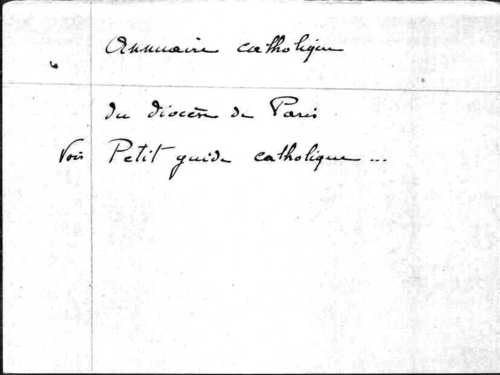 Annuaire catholique
du diocèse de Paris
Voir Petit guide catholique ...